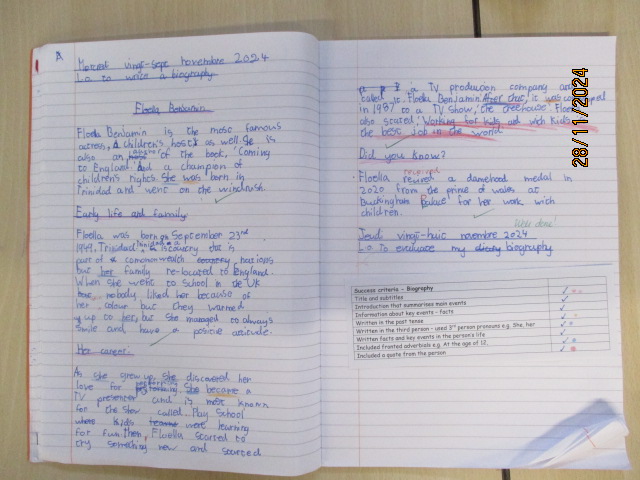 Mercredi vingt-sept novembre 2024
L.o to write a biography
Floella Benjamin
Floella Benjamin is the most famous
actress, A children's host as well. She is
also an host of the book, 'Coming
to England' And a champion of
children's rights. She was born in
Trinidad and went on the windrush.
Early life and family.
Floella was born on September 23rd
1949, Trinidad is a country that is
part of commonwealth nations
but her family re-located to England.
When she went to school in the UK
nobody liked her because of
her colour but they warmed
up to her, but she managed to always
smile and have a positive attitude.
Her career.
As she grew up, she discovered her
love for performing. She became a
TV presenter and is most known
for the show called. Play School
where kids were learning
for fun then, Floella started to
try something new and started
a TV producion company and
called it. Floella Benjamin After that, it was
in 1987 to a TV show, 'the treehouse'. Floella
also stared, 'Working for kids and with kids
the best job in the world'
Did you know?
Floella received a damehood medal in
2020 from the prince of wales at
Buckingham Palace for her work with
children.
Well done!
Jeudi vingt-huit novembre 2024
L.o To evaluate my biography
Success criteria - Biography
Title and subtitles
Introduction that summarises main events
Information about key events - facts
Written in the past tense
Written in the third person - used 3rd person pronouns e.g. She, her
Written facts and key events in the person's life
Included fronted adverbials e.g. At the age of 12,
Included a quote from the person
28/11/2024